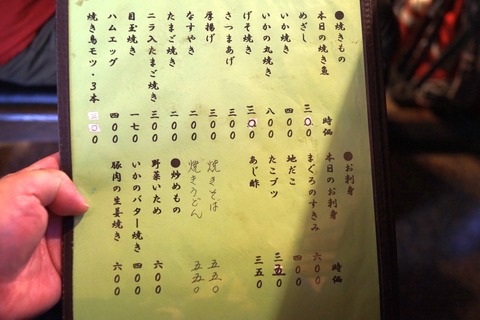 ●焼きもの
本日の焼き魚 時価
めざし 三〇〇
いか焼き 四〇〇
いかの丸焼き 八〇〇
げそ焼き 三〇〇
さつまあげ 三〇〇
厚揚げ 三〇〇
なすやき 二〇〇
たまご焼き 二〇〇
ニラ入たまご焼き 三〇〇
目玉焼き 一七〇
ハムエッグ 四〇〇
焼き鳥モツ・3本 三〇〇
●お刺身
本日のお刺身 時価
まぐろのすきみ 六〇〇
地だこ 四〇〇
たこブツ 三五〇
あじ酢 三五〇
焼きそば 五五〇
焼きうどん 五五〇
●炒めもの
野菜いため 六〇〇
いかのバター焼き 四〇〇
豚肉の生姜焼き 六〇〇